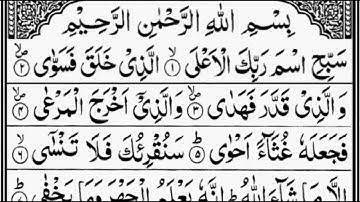 بِسْمِ اللّٰهِ الرَّحْمٰنِ الرَّحِيْمِ
سَبِّحِ اسْمَ رَبِّكَ الْاَعْلَى ۙ﴿۱﴾ الَّذِيْ خَلَقَ فَسَوّٰى ۪ۙ﴿۲﴾
وَالَّذِيْ قَدَّرَ فَهَدٰى ۪ۙ﴿۳﴾ وَالَّذِيْۤ اَخْرَجَ الْمَرْعٰى ۪ۙ﴿۴﴾
فَجَعَلَهٗ غُثَآءً اَحْوٰى ؕ﴿۵﴾ سَنُقْرِئُكَ فَلَا تَنْسٰۤى ۙ﴿۶﴾
اِلَّا مَا شَآءَ اللّٰهُ ؕ اِنَّهٗ يَعْلَمُ الْجَهْرَ وَمَا يَخْفٰى ؕ﴿۷﴾